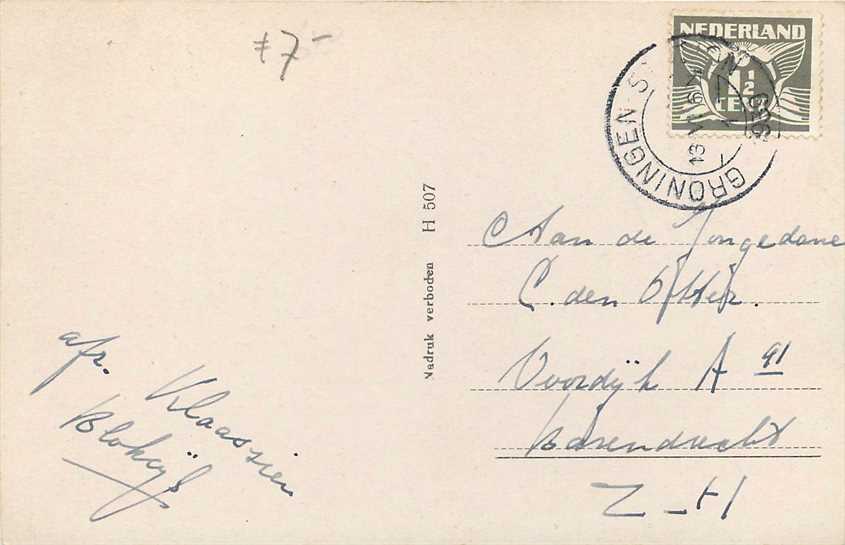 ≠ 7-
NEDERLAND
1 1/2
CENT
GRONINGEN
Nadruk verboden H 507
Aan de Jongedame
C. den Otter.
Voordijk A 91
Barendrecht
Z-H
afz. Klaassien
Blokzijl